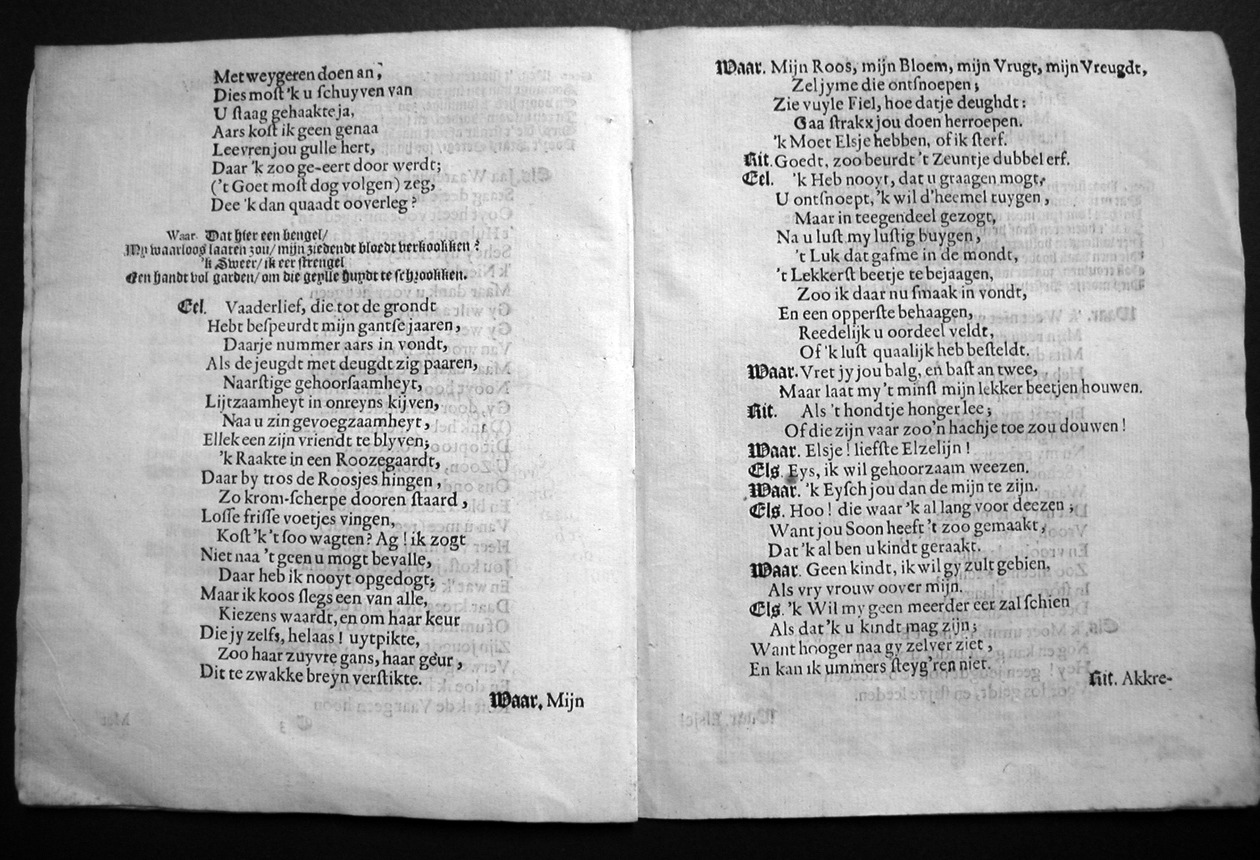 Met weygeren doen an;
Dies moſt 'k u ſchuyven van
U ſtaag gehaakte ja,
Aars koſt ik geen genaa
Leevren jou gulle hert,
Daar 'k zoo ge-eert door werdt;
('t Goet moſt dog volgen) zeg,
Dee 'k dan quaadt ooverleg?
Waar. Dat hier een bengel/
My waarloos laaten zou/ mijn ziedendt bloedt verkookken?
'k Sweer/ ik eer ſtrengel
Een handt vol garden/ om die geylle huydt te ſchrookken.
Eel. Vaaderlief, die tot de grondt
Hebt beſpeurdt mijn gantſe jaaren,
Daarje nummer aars in vondt,
Als de jeugdt met deugdt zig paaren,
Naarſtige gehoorſaamheyt,
Lijtzaamheyt in onreyns kijven,
Naa u zin gevoegzaamheyt,
Ellek een zijn vriendt te blyven;
'k Raakte in een Roozegaardt,
Daar by tros de Roosjes hingen,
Zo krom-ſcherpe dooren ſtaard,
Loſſe friſſe voetjes vingen,
Koſt 'k 't ſoo wagten? Ag! ik zogt
Niet naa 't geen u mogt bevalle,
Daar heb ik nooyt op gedogt;
Maar ik koos ſlegs een van alle,
Kiezens waardt, en om haar keur
Die jy zelfs, helaas! uytpikte,
Zoo haar zuyvre gans, haar geur,
Dit te zwakke breyn verſtikte.
Waar. Mijn
Waar. Mijn Roos, mijn Bloem, mijn Vrugt, mijn Vreugdt,
Zel jy me die ontſnoepen;
Zie vuyle Fiel, hoe datje deughdt:
Gaa ſtrakx jou doen herroepen.
'k Moet Elsje hebben, of ik ſterf.
Rit. Goedt, zoo beurdt 't Zeuntje dubbel erf.
Eel. 'k Heb nooyt, dat u graagen mogt,
U ontſnoept, 'k wil d'heemel tuygen,
Maar in teegendeel gezogt,
Na u luſt my luſtig buygen,
't Luk dat gaf me in de mondt,
't Lekkerſt beetje te bejaagen,
Zoo ik daar nu ſmaak in vondt,
En een opperſte behaagen,
Reedelijk u oordeel veldt,
Of 'k luſt quaalijk heb beſteldt.
Waar. Vret jy jou balg, en baſt an twee,
Maar laat my 't minſt mijn lekker beetjen houwen.
Rit. Als 't hondtje honger lee;
Of die zijn vaar zoo'n hachje toe zou douwen!
Waar. Elsje! liefſte Elzelijn!
Els. Eys, ik wil gehoorzaam weezen.
Waar. 'k Eyſch jou dan de mijn te zijn.
Els. Hoo! die waar 'k al lang voor deezen;
Want jou Soon heeft 't zoo gemaakt,
Dat 'k al ben u kindt geraakt.
Waar. Geen kindt, ik wil gy zult gebien,
Als vry vrouw oover mijn.
Els. 'k Wil my geen meerder eer zal ſchien
Als dat 'k u kindt mag zijn;
Want hooger naa gy zelver ziet,
En kan ik ummers ſteyg'ren niet.
Rit. Akkre-